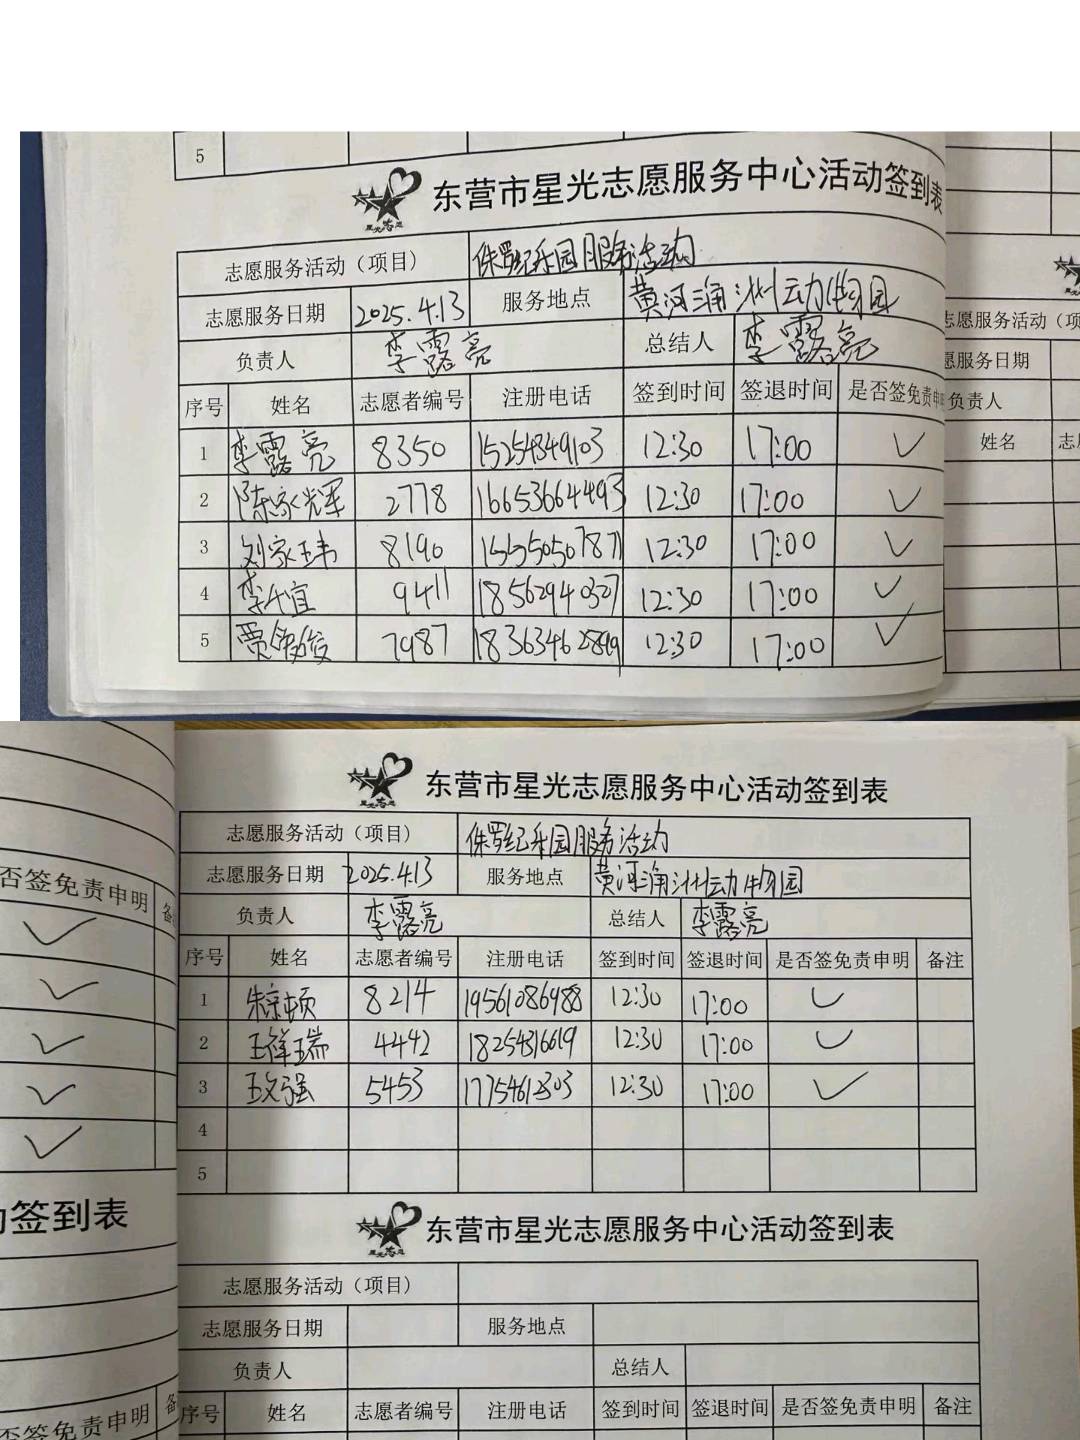 5
星光志愿
东营市星光志愿服务中心活动签到表
志愿服务活动（项目） 侏罗纪乐园服务活动
志愿服务日期 2025.4.13 服务地点 黄河三角洲动物园
负责人 李露亮 总结人 李露亮
序号 姓名 志愿者编号 注册电话 签到时间 签退时间 是否签免责申
1 李露亮 8350 15254349103 12:30 17:00 ✓
2 陈家辉 2778 16653664493 12:30 17:00 ✓
3 刘家玮 8190 15550507871 12:30 17:00 ✓
4 李千宜 9411 18562940327 12:30 17:00 ✓
5 贾俊 7987 18363462899 12:30 17:00 ✓
志愿服务活动（项
愿服务日期
负责人
姓名 志
星光志愿
东营市星光志愿服务中心活动签到表
志愿服务活动（项目） 侏罗纪乐园服务活动
志愿服务日期 2025.4.13 服务地点 黄河三角洲动物园
负责人 李露亮 总结人 李露亮
序号 姓名 志愿者编号 注册电话 签到时间 签退时间 是否签免责申明 备注
1 朱顿 8214 19561086988 12:30 17:00 ✓
2 王祥瑞 4442 18254316619 12:30 17:00 ✓
3 王文强 5453 17754612303 12:30 17:00 ✓
4
5
否签免责申明 备
✓
✓
✓
✓
✓
动签到表
否签免责申明 备
星光志愿
东营市星光志愿服务中心活动签到表
志愿服务活动（项目）
志愿服务日期 服务地点
负责人 总结人
序号 姓名 志愿者编号 注册电话 签到时间 签退时间 是否签免责申明 备注